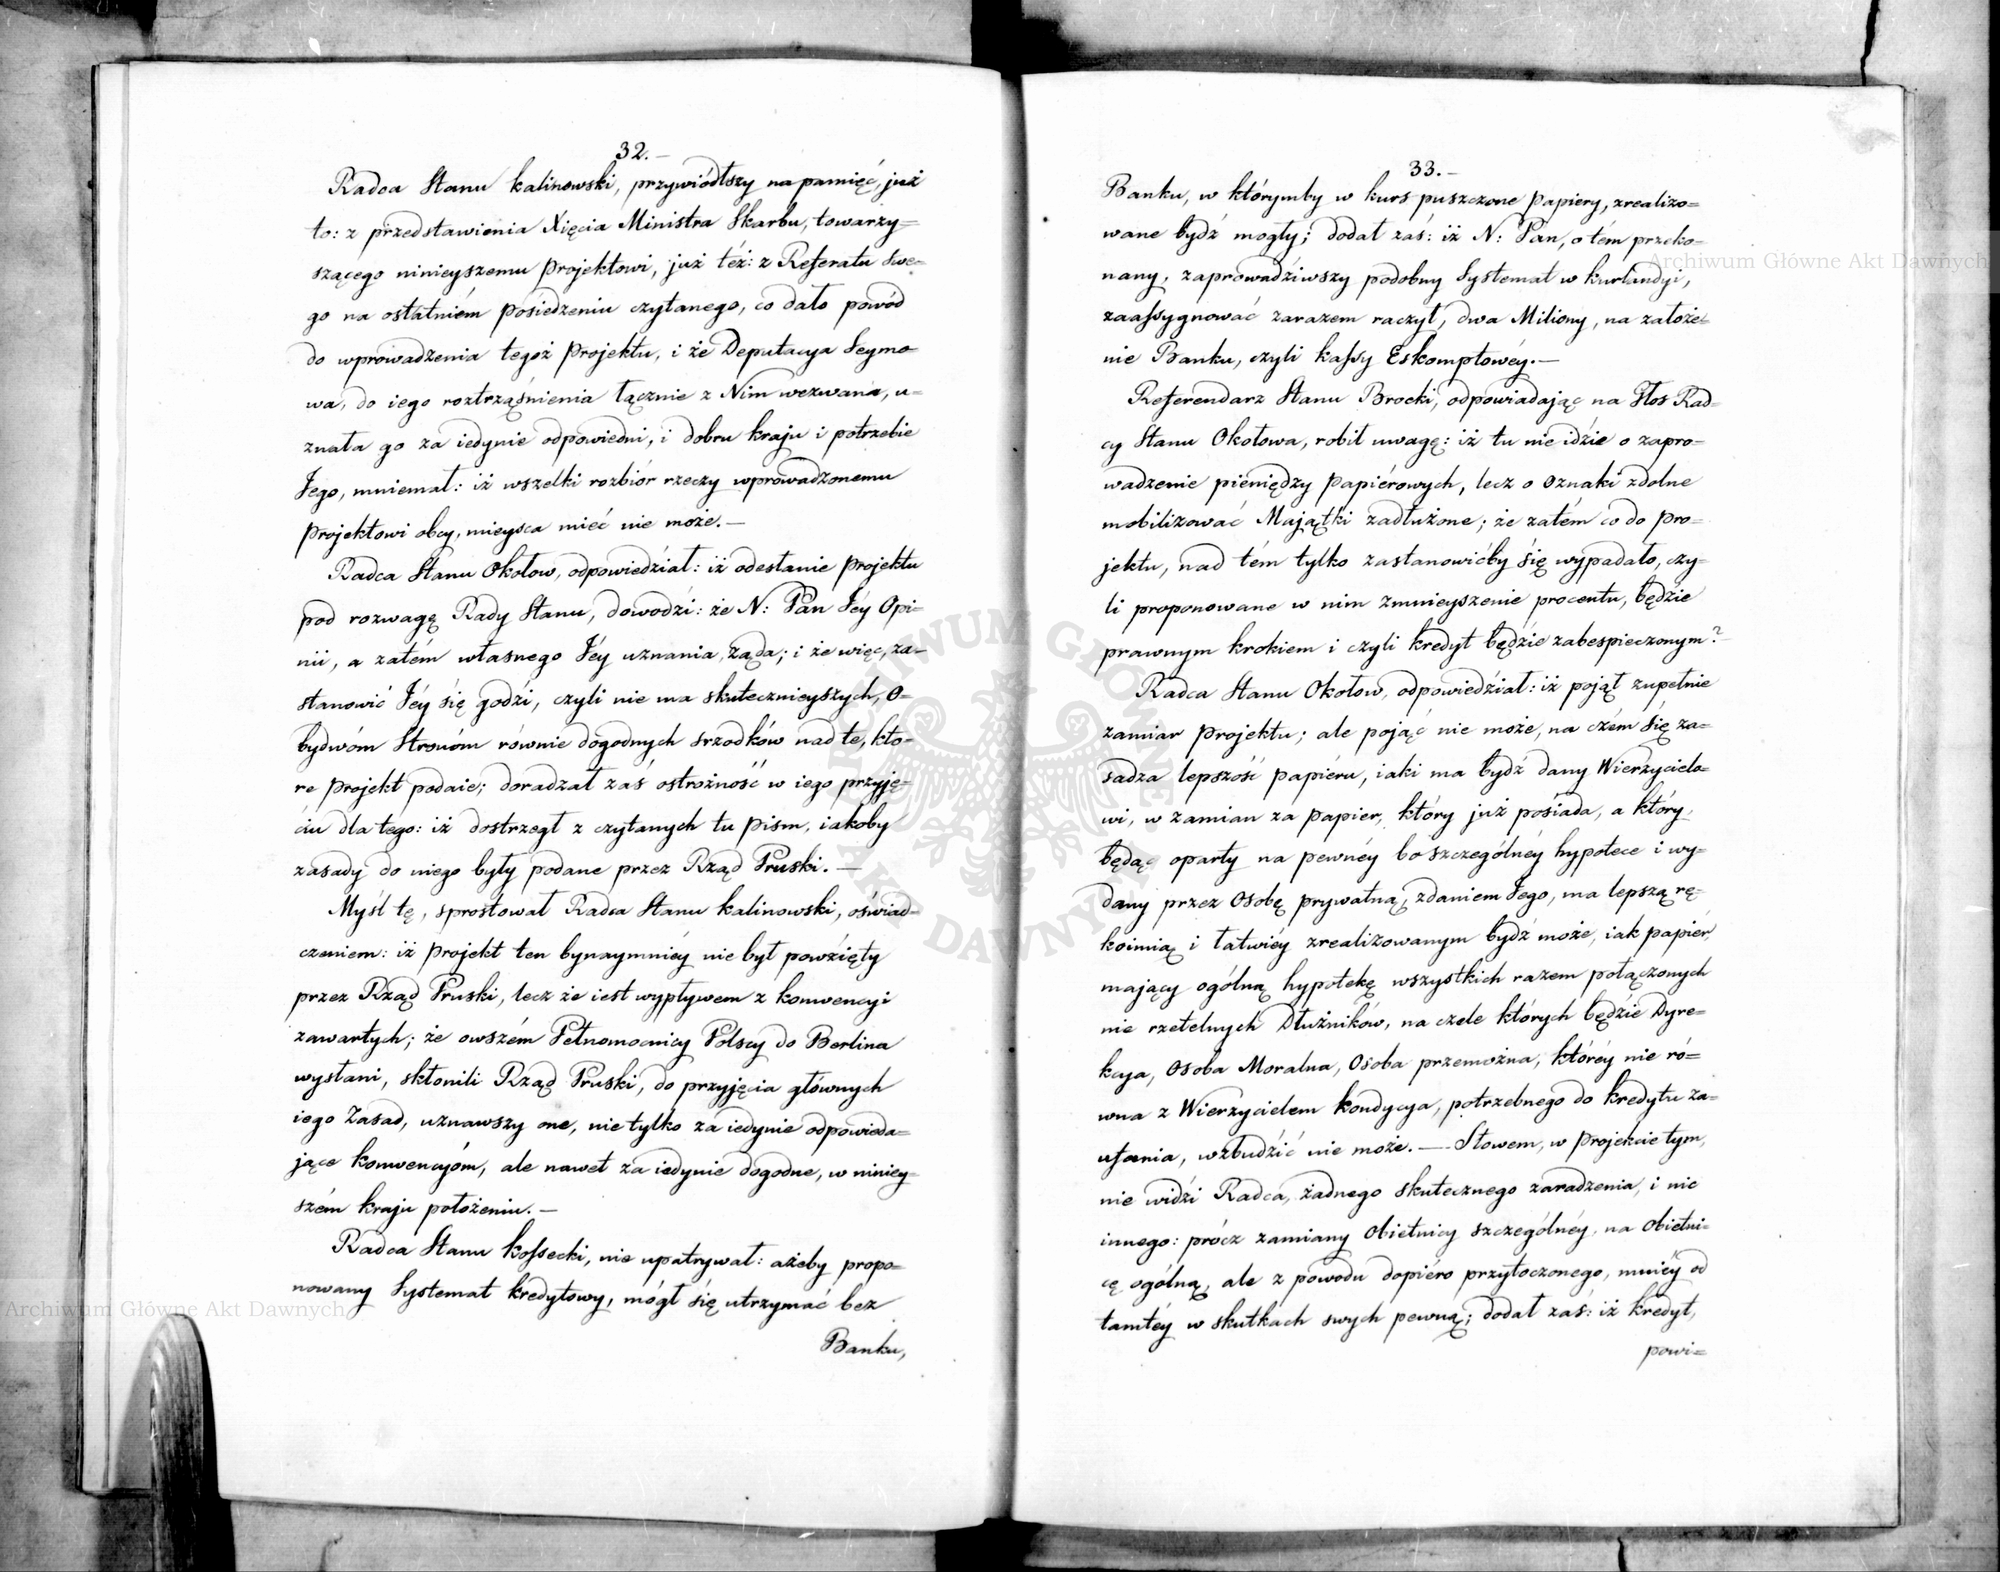 32.—
Radca Stanu Kalinowski, przywiódłszy na pamięć, już
to: z przedstawienia Xięcia Ministra Skarbu, towarzy-
szącego ninieyszemu projektowi, już też: z Referatu swe-
go na ostatniém posiedzeniu czytanego, co dało powód
do wprowadzenia tegoż Projektu, i że Deputacya Seymo-
wa, do iego roztrząśnienia łącznie z Nim wezwana, u-
znała go za iedynie odpowiedni, i dobru kraju i potrzebie
Jego, mniemał: iż wszelki rozbiór rzeczy wprowadzonemu
projektowi obcy, mieysca mieć nie może.—
Radca Stanu Okołow, odpowiedział: iż odesłanie projektu
pod rozwagę Rady Stanu, dowodzi: że N: Pan Jéy Opi-
nii, a zatém własnego Jéy uznania żąda; i że więc, za-
stanowić Jéy się godzi, czyli nie ma skutecznieyszych, o-
bydwóm Stronóm równie dogodnych srzodków nad te, któ-
re projekt podaie; doradzał zaś ostrożność w iego przyję-
ciu dla tego: iż dostrzegł z czytanych tu pism, iakoby
zasady do niego były podane przez Rząd Pruski.—
Myśl tę, sprostował Radca Stanu Kalinowski, oświad-
czeniem: iż projekt ten bynaymniéy nie był powzięty
przez Rząd Pruski, lecz że iest wypływem z konwencyi
zawartych; że owszém Pełnomocnicy Polscy do Berlina
wysłani, skłonili Rząd Pruski, do przyjęcia głównych
iego Zasad, uznawszy one, nie tylko za iedynie odpowieda-
jące konwencyóm, ale nawet za iedynie dogodne, w niniey-
szém kraju położeniu.—
Radca Stanu Kossecki, nie upatrywał: ażeby propo-
nowany Systemat kredytowy, mógł się utrzymać bez
Banku,
33.—
Banku, w którymby w kurs puszczone papiery, zrealizo-
wane bydź mogły; dodał zaś: iż N: Pan, o tém przeko-
nany, zaprowadziwszy podobny Systemat w Kurlandyi,
zaassygnować zarazem raczył, dwa Miliony, na założe-
nie Banku, czyli kassy Eskomptowéy.—
Referendarz Stanu Brocki, odpowiadając na Głos Rad-
cy Stanu Okołowa, robił uwagę: iż tu nie idzie o zapro-
wadzenie pieniędzy papiérowych, lecz o oznaki zdolne
mobilizować Majątki zadłużone; że zatém co do pro-
jektu, nad tém tylko zastanowićby się wypadało, czy-
li proponowane w nim zmnieyszenie procentu, będzie
prawnym krokiem i czyli kredyt będzie zabespieczonym?
Radca Stanu Okołow, odpowiedział: iż pojął zupełnie
zamiar projektu; ale pojąć nie może, na czém się za-
sadza lepszość papiéru, iaki ma bydź dany Wierzycielo-
wi, w zamian za papier, który już posiada, a który,
będąc oparty na pewnéy bo szczególnéy hypotece i wy-
dany przez Osobę prywatną, zdaniem Jego, ma lepszą rę-
koimią i łatwiéy zrealizowanym bydź może, iak papiér,
mający ogólną hypotekę wszystkich razem połączonych
nie rzetelnych Dłużników, na czele których będzie Dyre-
kcya, Osoba Moralna, Osoba przemożna, któréy nie ró-
wna z Wierzycielem kondycya, potrzebnego do kredytu za-
ufania, wzbudzić nie może.— Słowem, w projekcie tym,
nie widzi Radca, żadnego skutecznego zaradzenia, i nic
innego: prócz zamiany Obietnicy szczególnéy, na Obietni-
cę ogólną, ale z powodu dopiéro przytoczonego, mniéy od
tamtéy w skutkach swych pewną; dodał zaś: iż kredyt,
powi-
Archiwum Główne Akt Dawnych
Archiwum Główne Akt Dawnych
ARCHIWUM GŁÓWNE AKT DAWNYCH